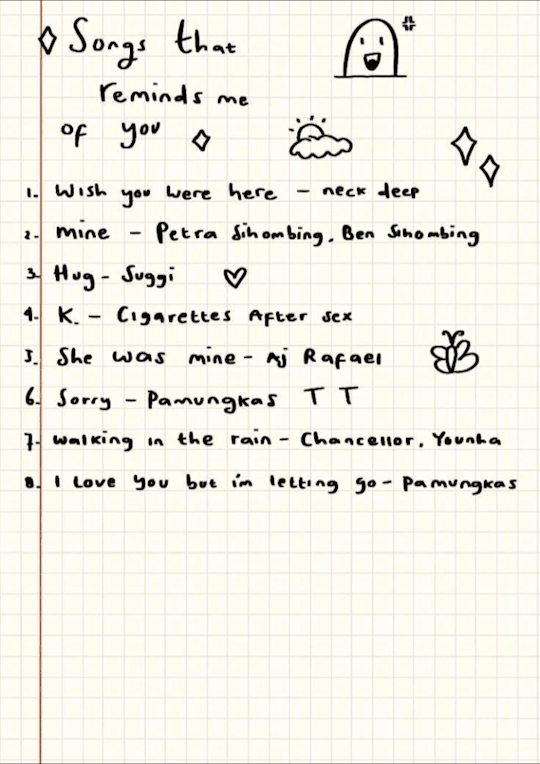 Songs that
reminds me
of you
1. Wish you were here - neck deep
2. mine - Petra Sihombing, Ben Sihombing
3. Hug - Suggi
4. K. - Cigarettes After sex
5. She was mine - Aj Rafael
6. Sorry - Pamungkas T T
7. walking in the rain - Chancellor, Younha
8. I Love you but i'm letting go - Pamungkas